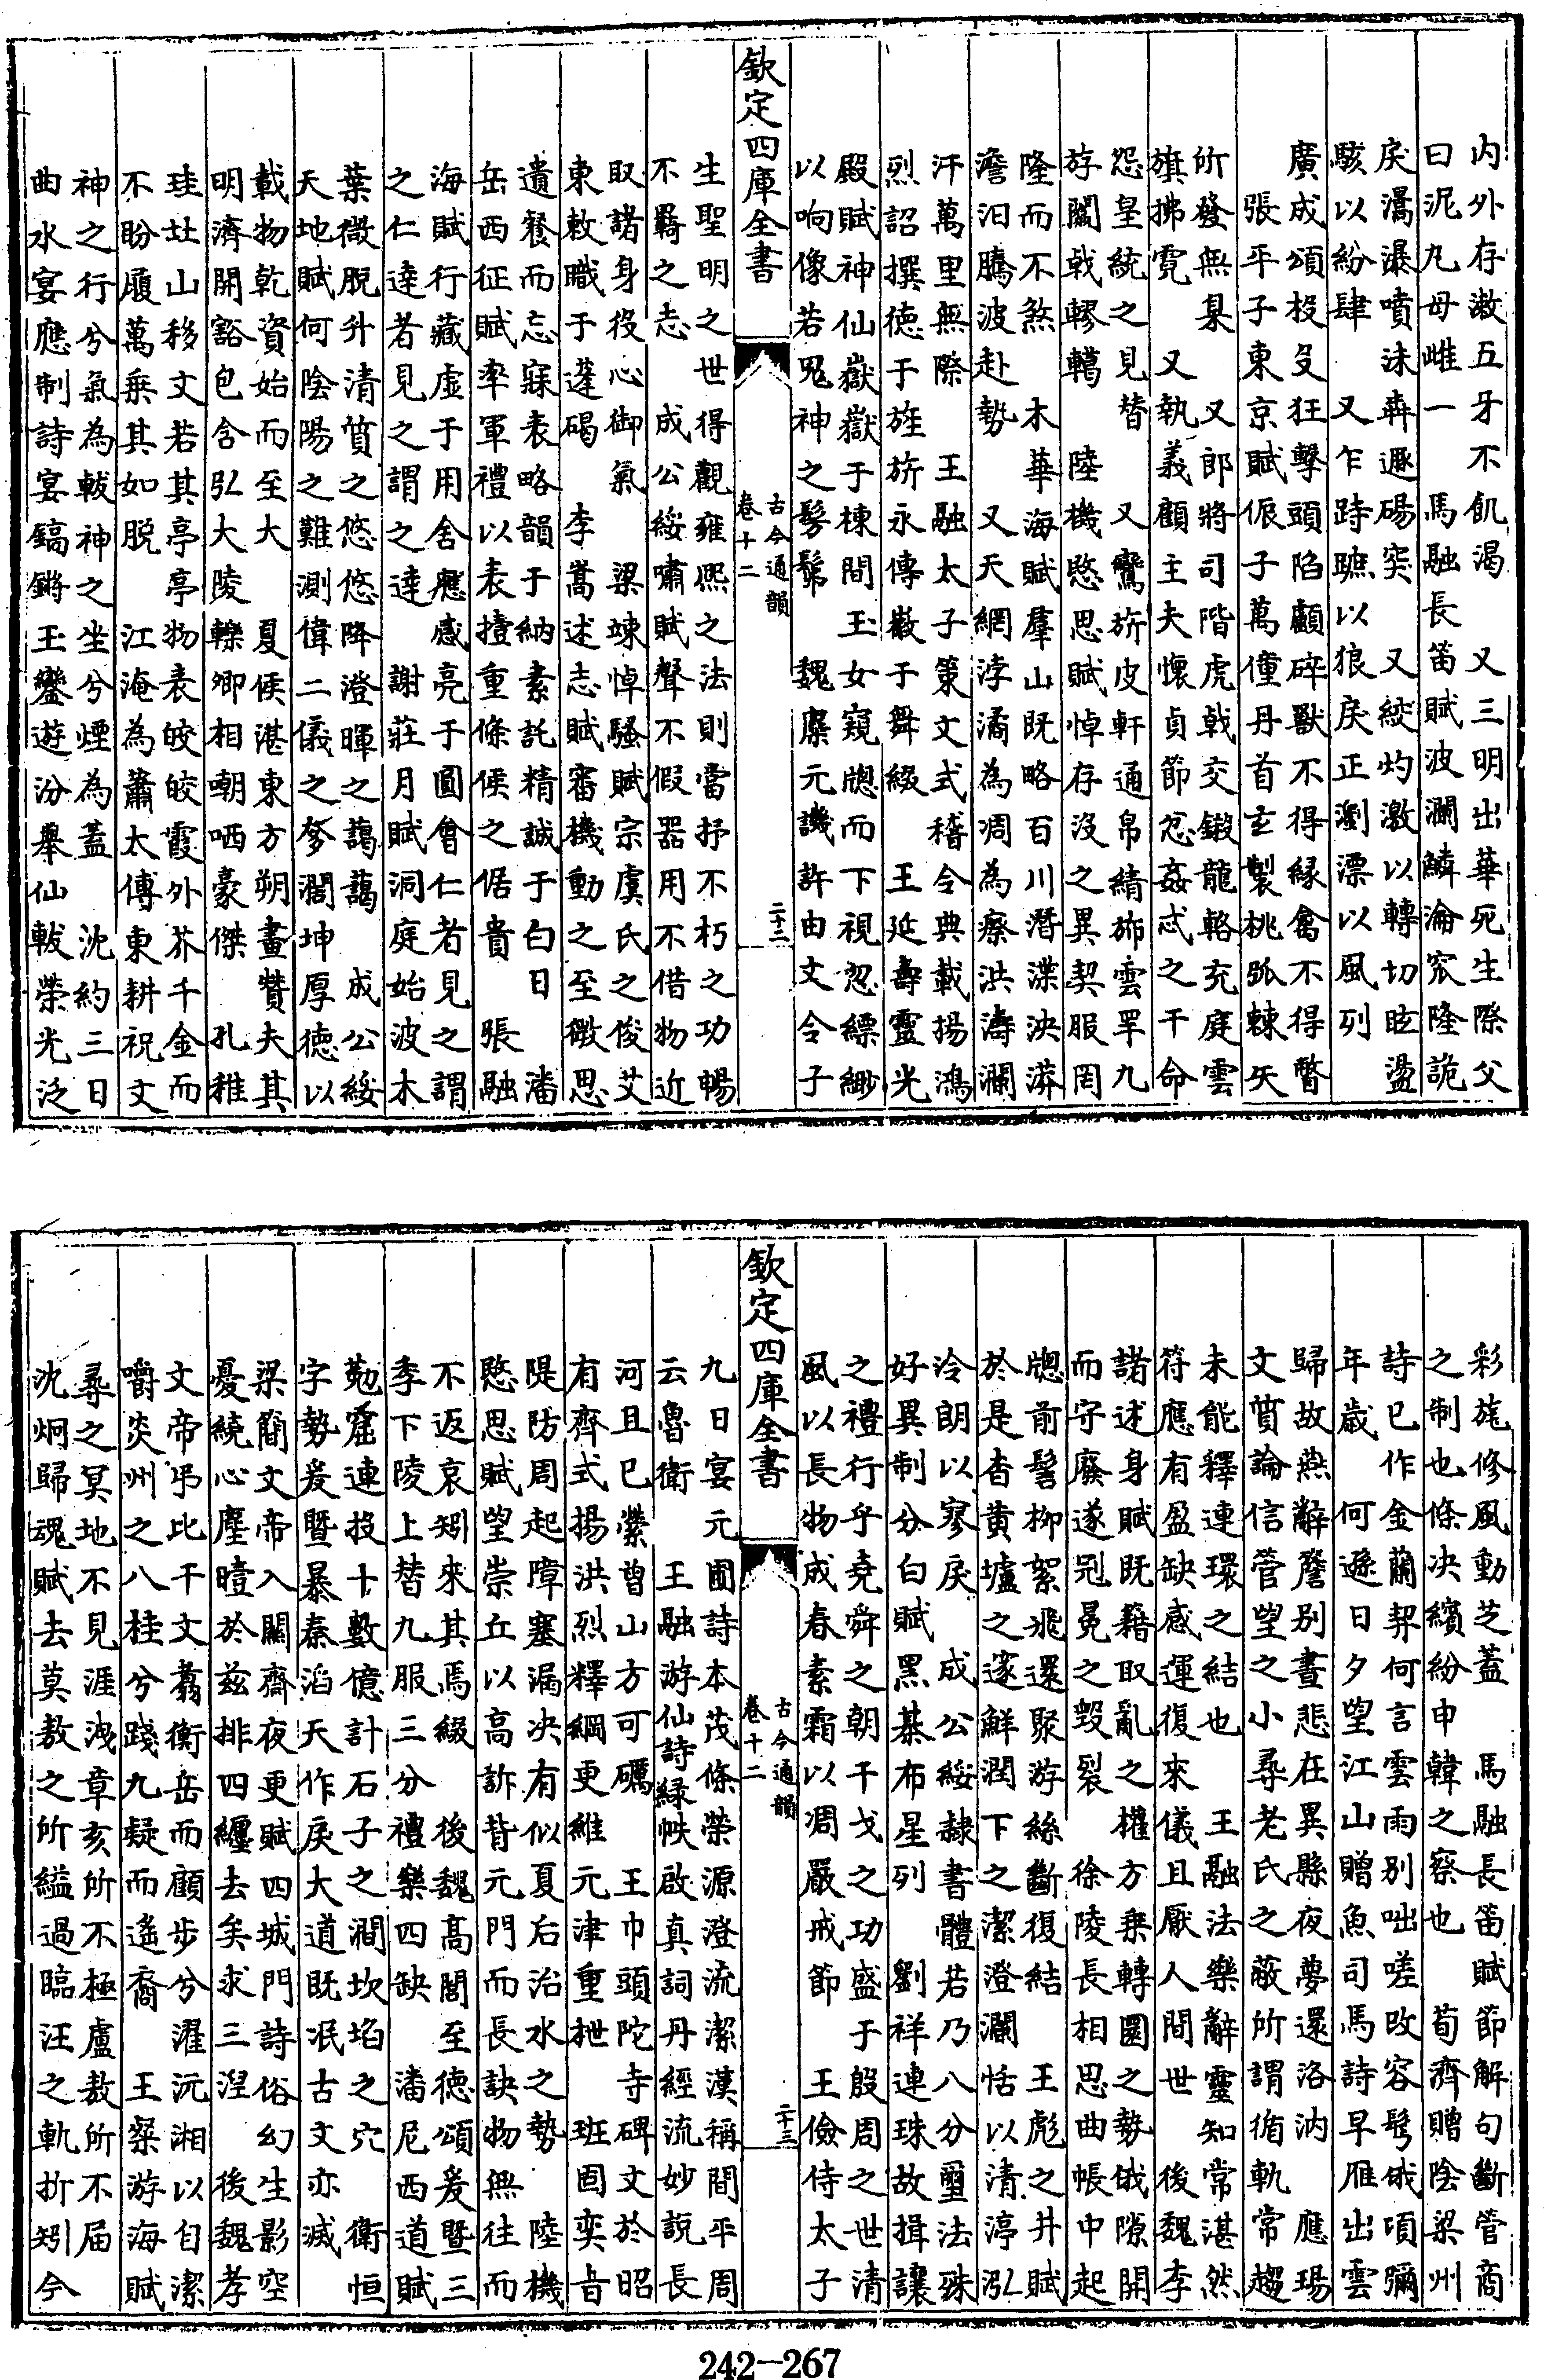 内外存漱五牙不飢渴　又三明出華死生際父
曰泥丸母雌一　馬融長笛賦波瀾鱗淪窊隆詭
戾㵧瀑噴沫犇遯碭突　又絞灼激以轉切眩盪
駭以紛肆　又乍跱蹠以狼戾正瀏漂以風列
廣成頌投殳狂擊頭陷顱碎獸不得緣禽不得瞥
張平子東京賦侲子萬僮丹首玄製桃弧棘矢
所發無臬　又郎將司階虎戟交鎩龍輅充庭雲
旗拂霓　又執義顧主夫懷貞節忿姦忒之干命
怨皇統之見替　又鸞旂皮軒通帛綪斾雲罕九
斿闟戟轇轕　陸機愍思賦悼存沒之異契服罔
隆而不煞　木華海賦羣山既略百川潛渫泱漭
澹汨騰波赴勢　又天網浡潏為凋為瘵洪濤瀾
汗萬里無際　王融太子策文式稽令典載揚鴻
烈詔撰德于旌旂永傳徽于舞綴　王延壽靈光
殿賦神仙嶽嶽于棟間玉女窺牕而下視忽縹緲
以响像若鬼神之髣髴　魏麋元譏許由文令子
欽定四庫全書
古今通韻
卷十二
二十二
生聖明之世得觀雍熙之法則當抒不朽之功暢
不羇之志　成公綏嘯賦聲不假器用不借物近
取諸身役心御氣　梁竦悼騷賦宗虞氏之俊艾
東敕職于蓬碣　李嵩述志賦審機動之至微思
遺餐而忘寐表略韻于納素託精誠于白日　潘
岳西征賦率軍禮以表撎重條侯之倨貴　張融
海賦行藏虛于用舍應感亮于圓會仁者見之謂
之仁達者見之謂之達　謝莊月賦洞庭始波木
葉微脫升清質之悠悠降澄暉之藹藹　成公綏
天地賦何陰陽之難測偉二儀之奓濶坤厚德以
載物乾資始而至大　夏侯湛東方朔畫贊夫其
明濟開豁包含弘大陵轢卿相嘲哂豪傑　孔稚
珪北山移文若其亭亭物表皎皎霞外芥千金而
不盼屣萬乘其如脫　江淹為蕭太傅東耕祝文
神之行兮氣為軷神之坐兮煙為蓋　沈約三日
曲水宴應制詩宴鎬鏘玉鑾遊汾舉仙軷榮光泛
彩旄修風動芝蓋　馬融長笛賦節解句斷管商
之制也條决繽紛申韓之察也　荀濟贈陰梁州
詩已作金蘭契何言雲雨別咄嗟改容髩俄頃彌
年歲　何遜日夕望江山贈魚司馬詩早雁出雲
歸故燕辭簷別晝悲在異縣夜夢還洛汭　應瑒
文質論信管望之小尋老氏之蔽所謂循軌常趨
未能釋連環之結也　王融法樂辭靈知常湛然
符應有盈缺感運復來儀且厭人間世　後魏李
諸述身賦既籍取亂之權方乘轉圜之勢俄隙開
而守廢遂冠冕之毀裂　徐陵長相思曲帳中起
牕前髻柳絮飛還聚游絲斷復結　王彪之井賦
於是杳黄壚之邃鮮潤下之潔澄瀾恬以清渟泓
冷朗以寥戾　成公綏隷書體若乃八分璽法殊
好異制分白賦黑棊布星列　劉祥連珠故揖讓
之禮行乎堯舜之朝干戈之功盛于殷周之世清
風以長物成春素霜以凋嚴戒節　王儉侍太子
欽定四庫全書
古今通韻
卷十二
二十三
九日宴元圃詩本茂條榮源澄流潔漢稱間平周
云魯衛　王融游仙詩緑帙啟真詞丹經流妙說長
河且已縈曾山方可礪　王巾頭陀寺碑文於昭
有齊式揚洪烈釋綱更維元津重枻　班固奕旨
隄防周起障塞漏决有似夏后治水之勢　陸機
愍思賦望崇丘以高訴背元門而長訣物無往而
不返哀矧來其焉綴　後魏高閭至德頌爰暨三
季下陵上替九服三分禮樂四缺　潘尼西道賦
勉窟連投十數億計石子之澗坎埳之穴　衛恒
字勢爰暨暴秦滔天作戾大道既泯古文亦滅
梁簡文帝入關齋夜更賦四城門詩俗幻生影空
憂繞心塵曀於茲排四纏去矣求三涅　後魏孝
文帝弔比干文翥衡岳而顧步兮濯沅湘以自潔
嚼炎州之八桂兮踐九疑而遙裔　王粲游海賦
尋之冥地不見涯洩章亥所不極盧敖所不届
沈炯歸魂賦去莫敖之所縊過臨汪之軌折矧今
242-267